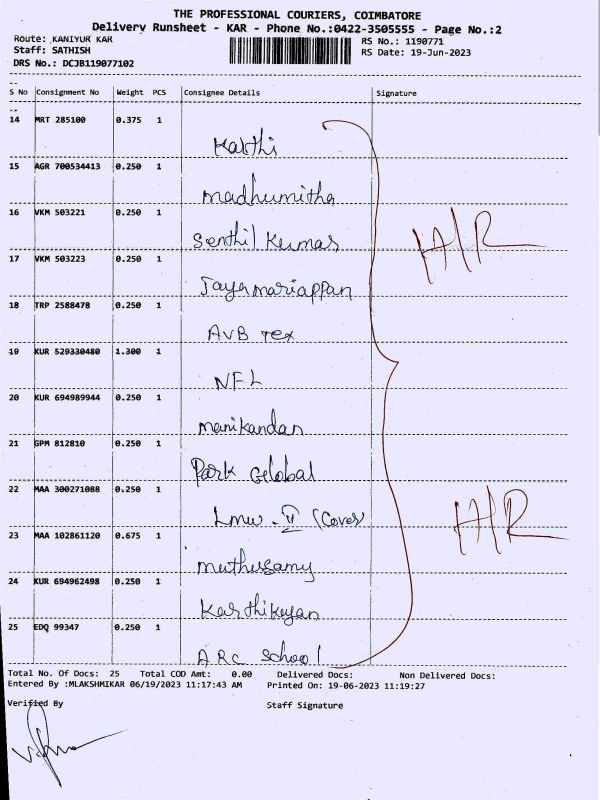 THE PROFESSIONAL COURIERS, COIMBATORE
Delivery Runsheet - KAR - Phone No.:0422-3505555 - Page No.:2
Route: KANIYUR KAR
RS No.: 1190771
Staff: SATHISH
RS Date: 19-Jun-2023
DRS No.: DCJB119077102
S No Consignment No Weight PCS Consignee Details Signature
14 MRT 285100 0.375 1
Karthi
15 AGR 700534413 0.250 1
Madhumitha
16 VKM 503221 0.250 1
Senthil Kumar
17 VKM 503223 0.250 1
Jayamariappan
18 TRP 2588478 0.250 1
AVB Tex
19 KUR 529330480 1.300 1
NFL
20 KUR 694989944 0.250 1
Manikandan
21 GPM 812810 0.250 1
Park Global
22 MAA 300271088 0.250 1
Lmw - II (Cover
23 MAA 102861120 0.675 1
Muthusamy
24 KUR 694962498 0.250 1
Karthikeyan
25 EDQ 99347 0.250 1
ARC School
Total No. Of Docs: 25 Total COD Amt: 0.00 Delivered Docs: Non Delivered Docs:
Entered By :MLAKSHMIKAR 06/19/2023 11:17:43 AM Printed On: 19-06-2023 11:19:27
Verified By Staff Signature